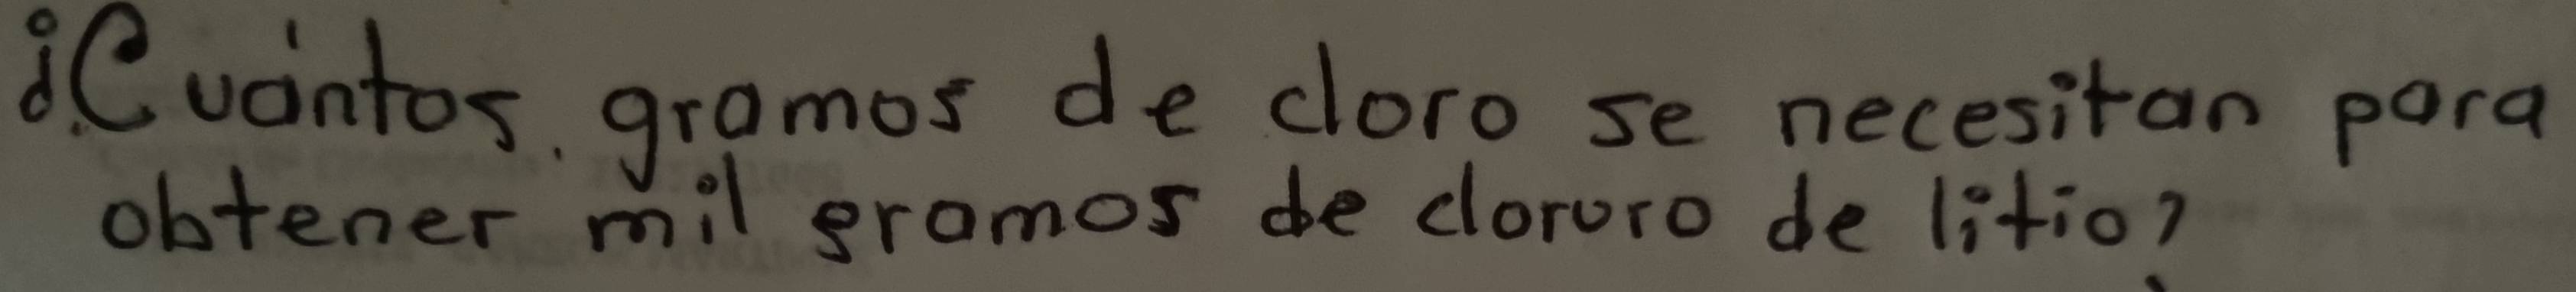 ¿Cuántos gramos de cloro se necesitan para
obtener mil gramos de cloruro de litio?